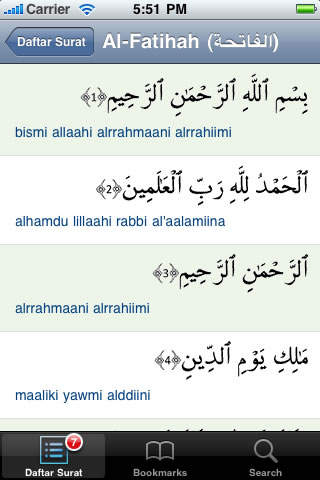 Carrier 5:51 PM
Daftar Surat Al-Fatihah (الفاتحة)
بِسْمِ ٱللَّهِ ٱلرَّحْمَٰنِ ٱلرَّحِيمِ ﴿1﴾
bismi allaahi alrrahmaani alrrahiimi
ٱلْحَمْدُ لِلَّهِ رَبِّ ٱلْعَٰلَمِينَ ﴿2﴾
alhamdu lillaahi rabbi al'aalamiina
ٱلرَّحْمَٰنِ ٱلرَّحِيمِ ﴿3﴾
alrrahmaani alrrahiimi
مَٰلِكِ يَوْمِ ٱلدِّينِ ﴿4﴾
maaliki yawmi alddiini
7
Daftar Surat Bookmarks Search